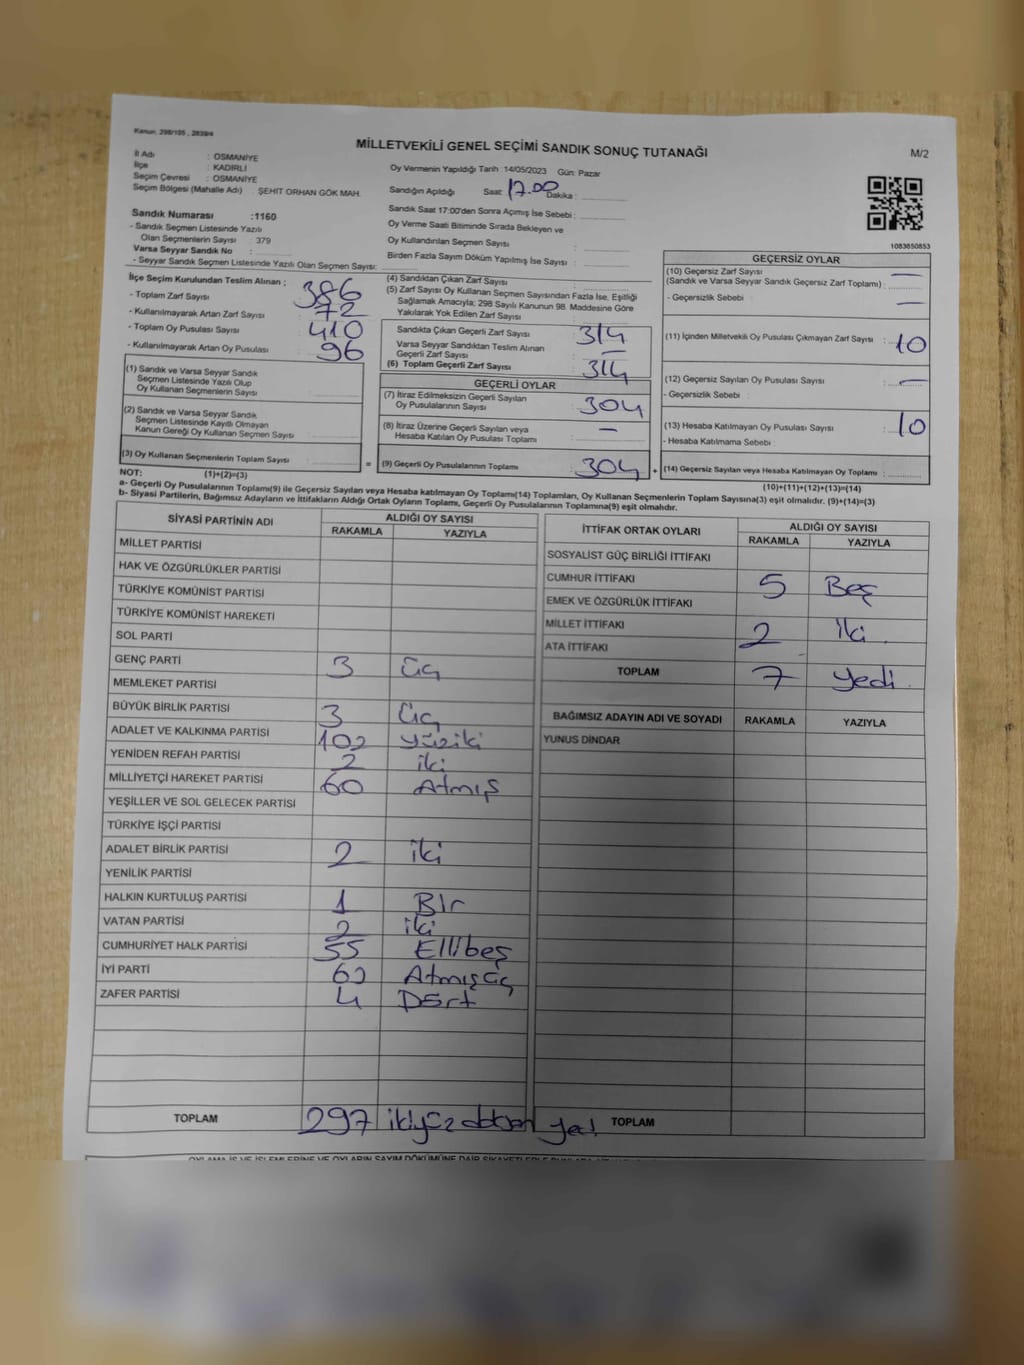 Kanun, 298/105 , 2839/4
MİLLETVEKİLİ GENEL SEÇİMİ SANDIK SONUÇ TUTANAĞI
M/2
İl Adı : OSMANİYE
İlçe : KADİRLİ
Seçim Çevresi : OSMANİYE
Seçim Bölgesi (Mahalle Adı) : ŞEHİT ORHAN GÖK MAH.
Sandık Numarası :1160
- Sandık Seçmen Listesinde Yazılı
Olan Seçmenlerin Sayısı : 379
Varsa Seyyar Sandık No :
- Seyyar Sandık Seçmen Listesinde Yazılı Olan Seçmen Sayısı:
Oy Vermenin Yapıldığı Tarih :14/05/2023 Gün: Pazar
Sandığın Açıldığı Saat: 17.00 Dakika :
Sandık Saat 17:00'den Sonra Açımış İse Sebebi :
Oy Verme Saati Bitiminde Sırada Bekleyen ve
Oy Kullandırılan Seçmen Sayısı :
Birden Fazla Sayım Döküm Yapılmış İse Sayısı :
1083850853
İlçe Seçim Kurulundan Teslim Alınan ;
- Toplam Zarf Sayısı : 386
- Kullanılmayarak Artan Zarf Sayısı : 72
- Toplam Oy Pusulası Sayısı : 410
- Kullanılmayarak Artan Oy Pusulası : 96
(1) Sandık ve Varsa Seyyar Sandık
Seçmen Listesinde Yazılı Olup
Oy Kullanan Seçmenlerin Sayısı :
(2) Sandık ve Varsa Seyyar Sandık
Seçmen Listesinde Kayıtlı Olmayan
Kanun Gereği Oy Kullanan Seçmen Sayısı :
(3) Oy Kullanan Seçmenlerin Toplam Sayısı :
(4) Sandıktan Çıkan Zarf Sayısı :
(5) Zarf Sayısı Oy Kullanan Seçmen Sayısından Fazla İse, Eşitliği
Sağlamak Amacıyla; 298 Sayılı Kanunun 98. Maddesine Göre
Yakılarak Yok Edilen Zarf Sayısı :
Sandıkta Çıkan Geçerli Zarf Sayısı : 314
Varsa Seyyar Sandıktan Teslim Alınan
Geçerli Zarf Sayısı : —
(6) Toplam Geçerli Zarf Sayısı : 314
GEÇERLİ OYLAR
(7) İtiraz Edilmeksizin Geçerli Sayılan
Oy Pusulalarının Sayısı : 304
(8) İtiraz Üzerine Geçerli Sayılan veya
Hesaba Katılan Oy Pusulası Toplamı : —
= (9) Geçerli Oy Pusulalarının Toplamı : 304 +
GEÇERSİZ OYLAR
(10) Geçersiz Zarf Sayısı —
(Sandık ve Varsa Seyyar Sandık Geçersiz Zarf Toplamı) :
- Geçersizlik Sebebi : —
(11) İçinden Milletvekili Oy Pusulası Çıkmayan Zarf Sayısı : 10
(12) Geçersiz Sayılan Oy Pusulası Sayısı : —
- Geçersizlik Sebebi :
(13) Hesaba Katılmayan Oy Pusulası Sayısı : 10
- Hesaba Katılmama Sebebi :
(14) Geçersiz Sayılan veya Hesaba Katılmayan Oy Toplamı :
NOT: (1)+(2)=(3)
(10)+(11)+(12)+(13)=(14)
a- Geçerli Oy Pusulalarının Toplamı(9) ile Geçersiz Sayılan veya Hesaba katılmayan Oy Toplamı(14) Toplamları, Oy Kullanan Seçmenlerin Toplam Sayısına(3) eşit olmalıdır. (9)+(14)=(3)
b- Siyasi Partilerin, Bağımsız Adayların ve İttifakların Aldığı Ortak Oyların Toplamı, Geçerli Oy Pusulalarının Toplamına(9) eşit olmalıdır.
SİYASİ PARTİNİN ADI ALDIĞI OY SAYISI
RAKAMLA YAZIYLA
MİLLET PARTİSİ
HAK VE ÖZGÜRLÜKLER PARTİSİ
TÜRKİYE KOMÜNİST PARTİSİ
TÜRKİYE KOMÜNİST HAREKETİ
SOL PARTİ
GENÇ PARTİ 3 üç
MEMLEKET PARTİSİ
BÜYÜK BİRLİK PARTİSİ 3 üç
ADALET VE KALKINMA PARTİSİ 102 yüziki
YENİDEN REFAH PARTİSİ 2 iki
MİLLİYETÇİ HAREKET PARTİSİ 60 Atmış
YEŞİLLER VE SOL GELECEK PARTİSİ
TÜRKİYE İŞÇİ PARTİSİ
ADALET BİRLİK PARTİSİ 2 iki
YENİLİK PARTİSİ
HALKIN KURTULUŞ PARTİSİ 1 Bir
VATAN PARTİSİ 2 iki
CUMHURİYET HALK PARTİSİ 55 Ellibeş
İYİ PARTİ 63 Atmışüç
ZAFER PARTİSİ 4 Dört
TOPLAM 297 ikiyüz doksan yedi
İTTİFAK ORTAK OYLARI ALDIĞI OY SAYISI
RAKAMLA YAZIYLA
SOSYALİST GÜÇ BİRLİĞİ İTTİFAKI
CUMHUR İTTİFAKI 5 Beş
EMEK VE ÖZGÜRLÜK İTTİFAKI
MİLLET İTTİFAKI 2 iki.
ATA İTTİFAKI
TOPLAM 7 yedi.
BAĞIMSIZ ADAYIN ADI VE SOYADI RAKAMLA YAZIYLA
YUNUS DİNDAR
TOPLAM